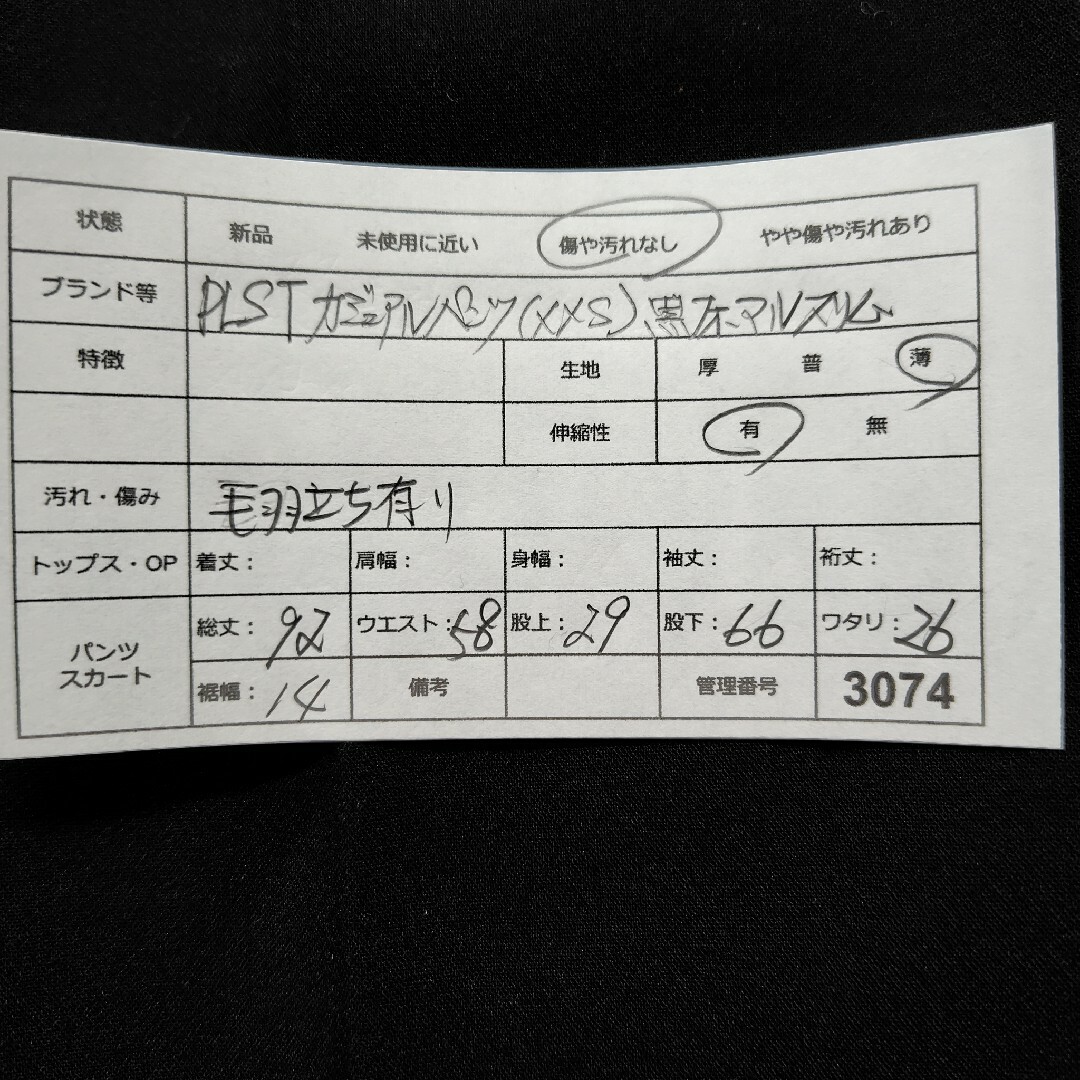 状態 新品 未使用に近い 傷や汚れなし やや傷や汚れあり
ブランド等 PLST カジュアルパンツ(XXS) 黒 フォーマル スリム
特徴 生地 厚 普 薄
伸縮性 有 無
汚れ・傷み 毛羽立ち有り
トップス・OP 着丈: 肩幅: 身幅: 袖丈: 裄丈:
パンツ スカート 総丈: 92 ウエスト: 58 股上: 29 股下: 66 ワタリ: 26
裾幅: 14 備考 管理番号 3074